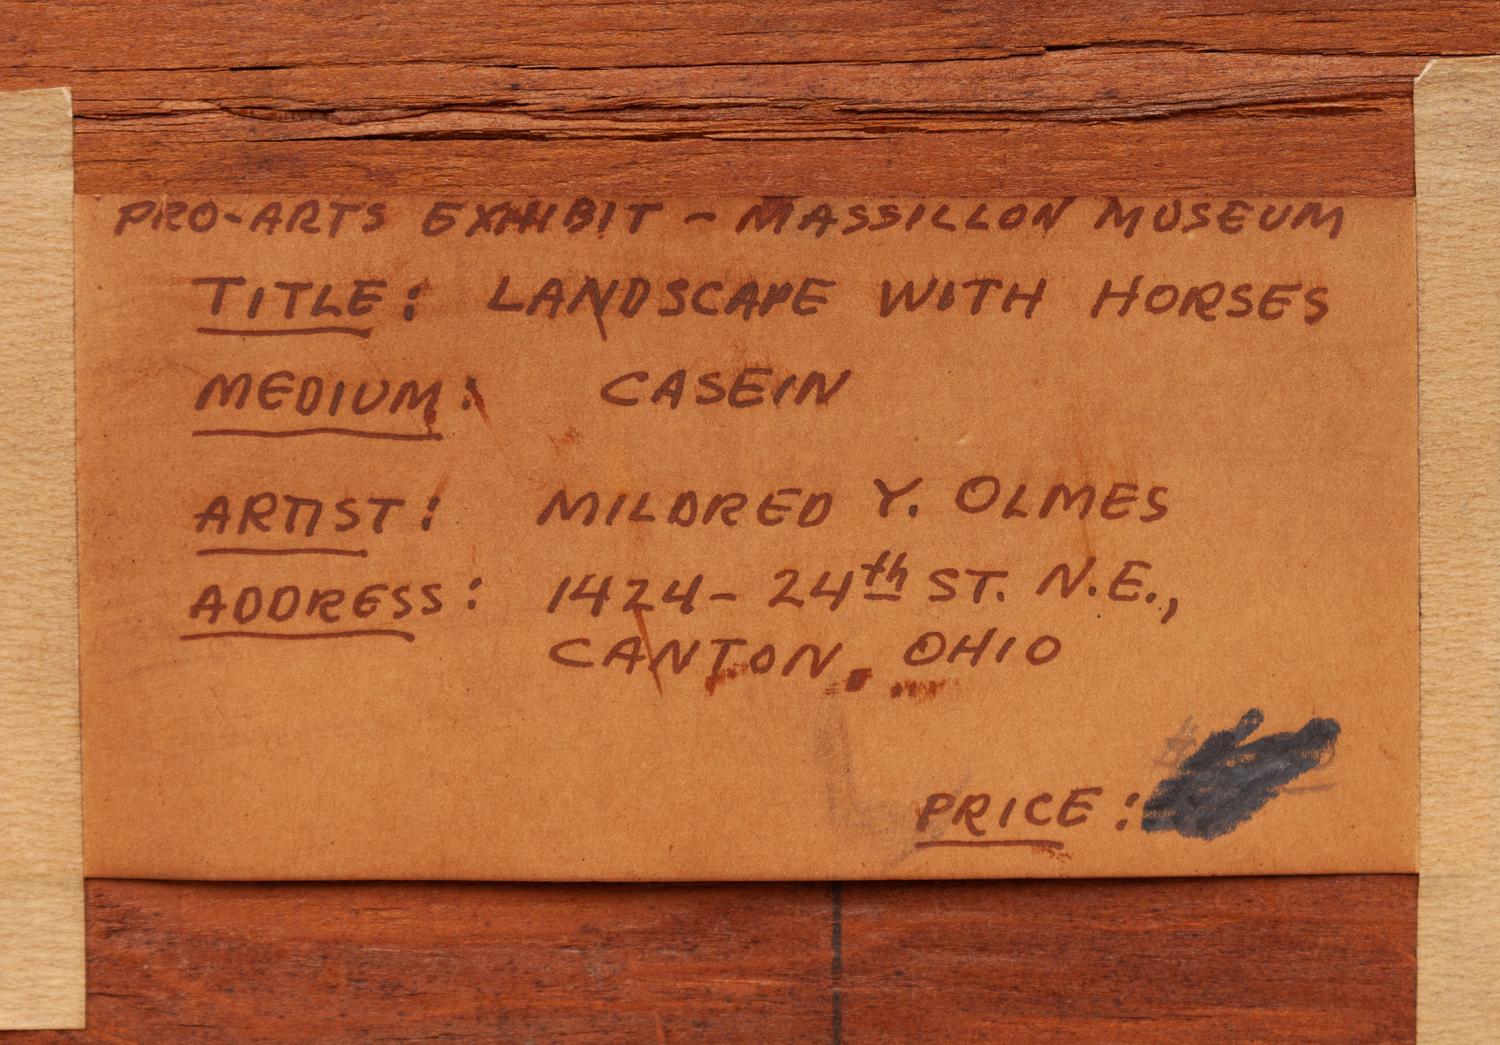 PRO-ARTS EXHIBIT - MASSILLON MUSEUM
TITLE: LANDSCAPE WITH HORSES
MEDIUM: CASEIN
ARTIST: MILDRED Y. OLMES
ADDRESS: 1424- 24th ST. N.E.,
CANTON, OHIO
PRICE: